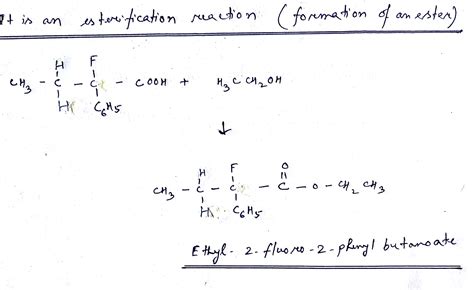 It is an esterification reaction (formation of an ester)
H F
CH3 - C - C - COOH + H3C CH2OH
H C6H5
↓
H F O
CH3 - C - C - C - O - CH2 CH3
H C6H5
Ethyl-2-fluoro-2-phenyl butanoate